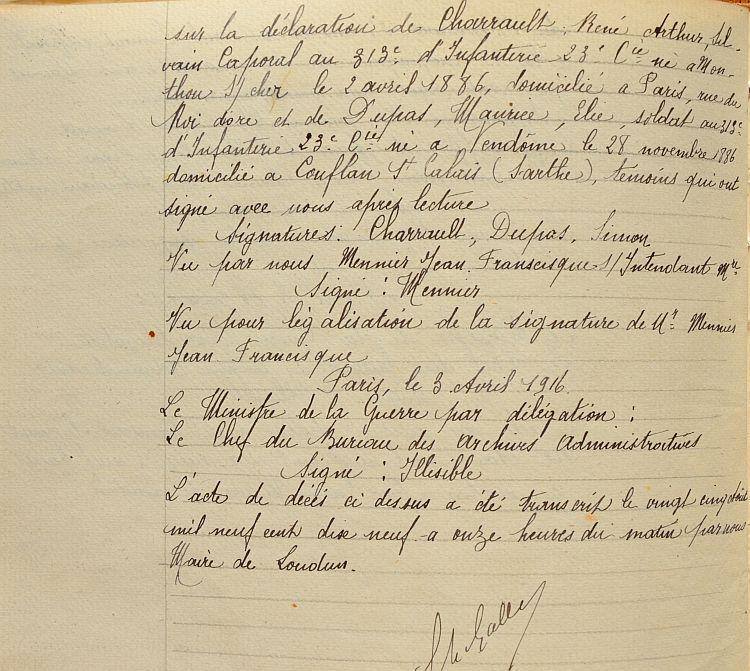 sur la déclaration de Charrault, René Arthur, Sil-
vain Caporal au 313e d'Infanterie 23e Cie né a Mon-
thou s/ cher le 2 avril 1886, domicilié a Paris, rue du
Roi dore et de Dupas, Maurice, Elie, soldat au 313e
d'Infanterie 23e Cie né a Vendôme le 28 novembre 1886
domicilié a Conflan St Calais (Sarthe), témoins qui ont
signé avec nous après lecture
Signatures: Charrault, Dupas, Simon
Vu par nous Mennier Jean Franscisque s/Intendant Mre
Signé : Mennier
Vu pour légalisation de la signature de Mr Mennier
Jean Francisque
Paris, le 3 Avril 1916
Le Ministre de la Guerre par délégation :
Le Chef du Bureau des Archives Administratives
Signé : Illisible
L'acte de décès ci dessus a été transcrit le vingt cinq août
mil neuf cent dix neuf a onze heures du matin par nous
Maire de Loudun.